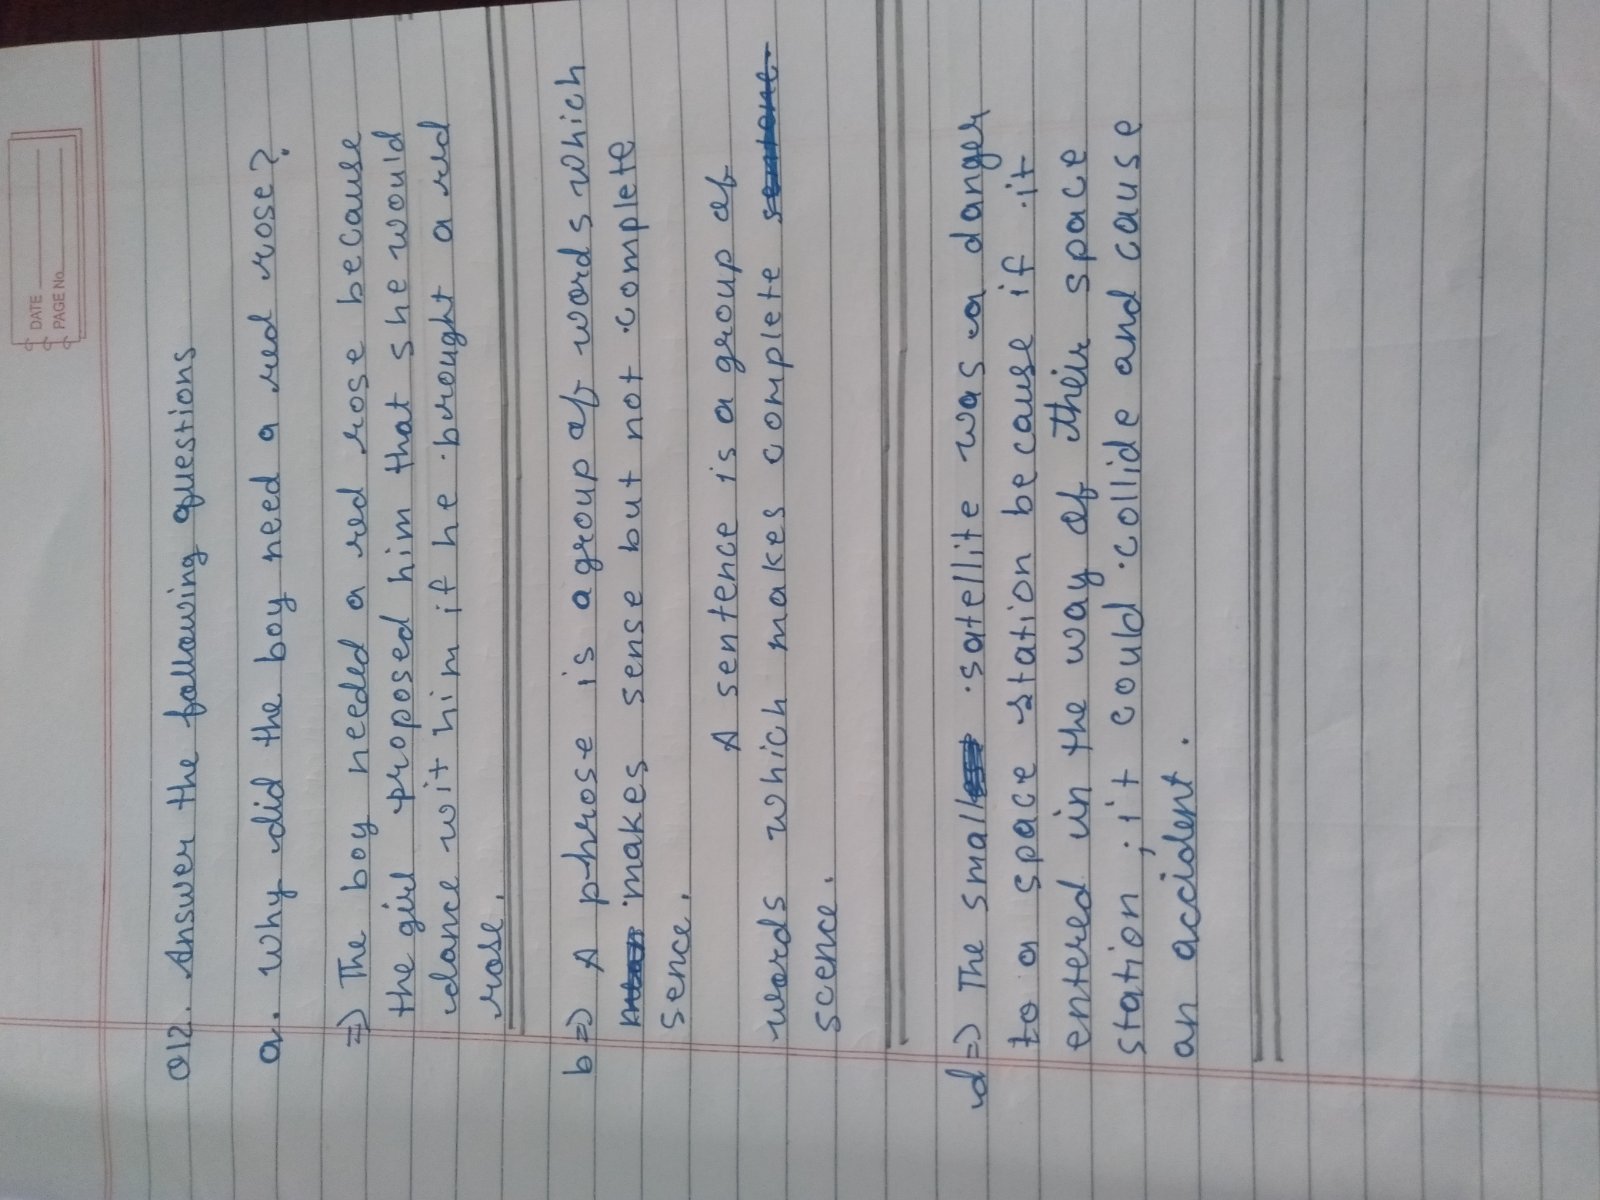 DATE
PAGE No.
Q12. Answer the following questions
a. Why did the boy need a red rose?
=> The boy needed a red rose because
the girl proposed him that she would
dance wit him if he brought a red
rose.
b => A phrase is a group of words which
makes sense but not complete
sence.
A sentence is a group of
words which makes complete
scence.
d => The small satellite was a danger
to a space station because if it
entered in the way of their space
station, it could collide and cause
an accident.